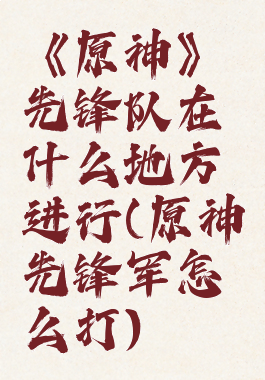 《原神》
先锋队在
什么地方
进行(原神
先锋军怎
么打)